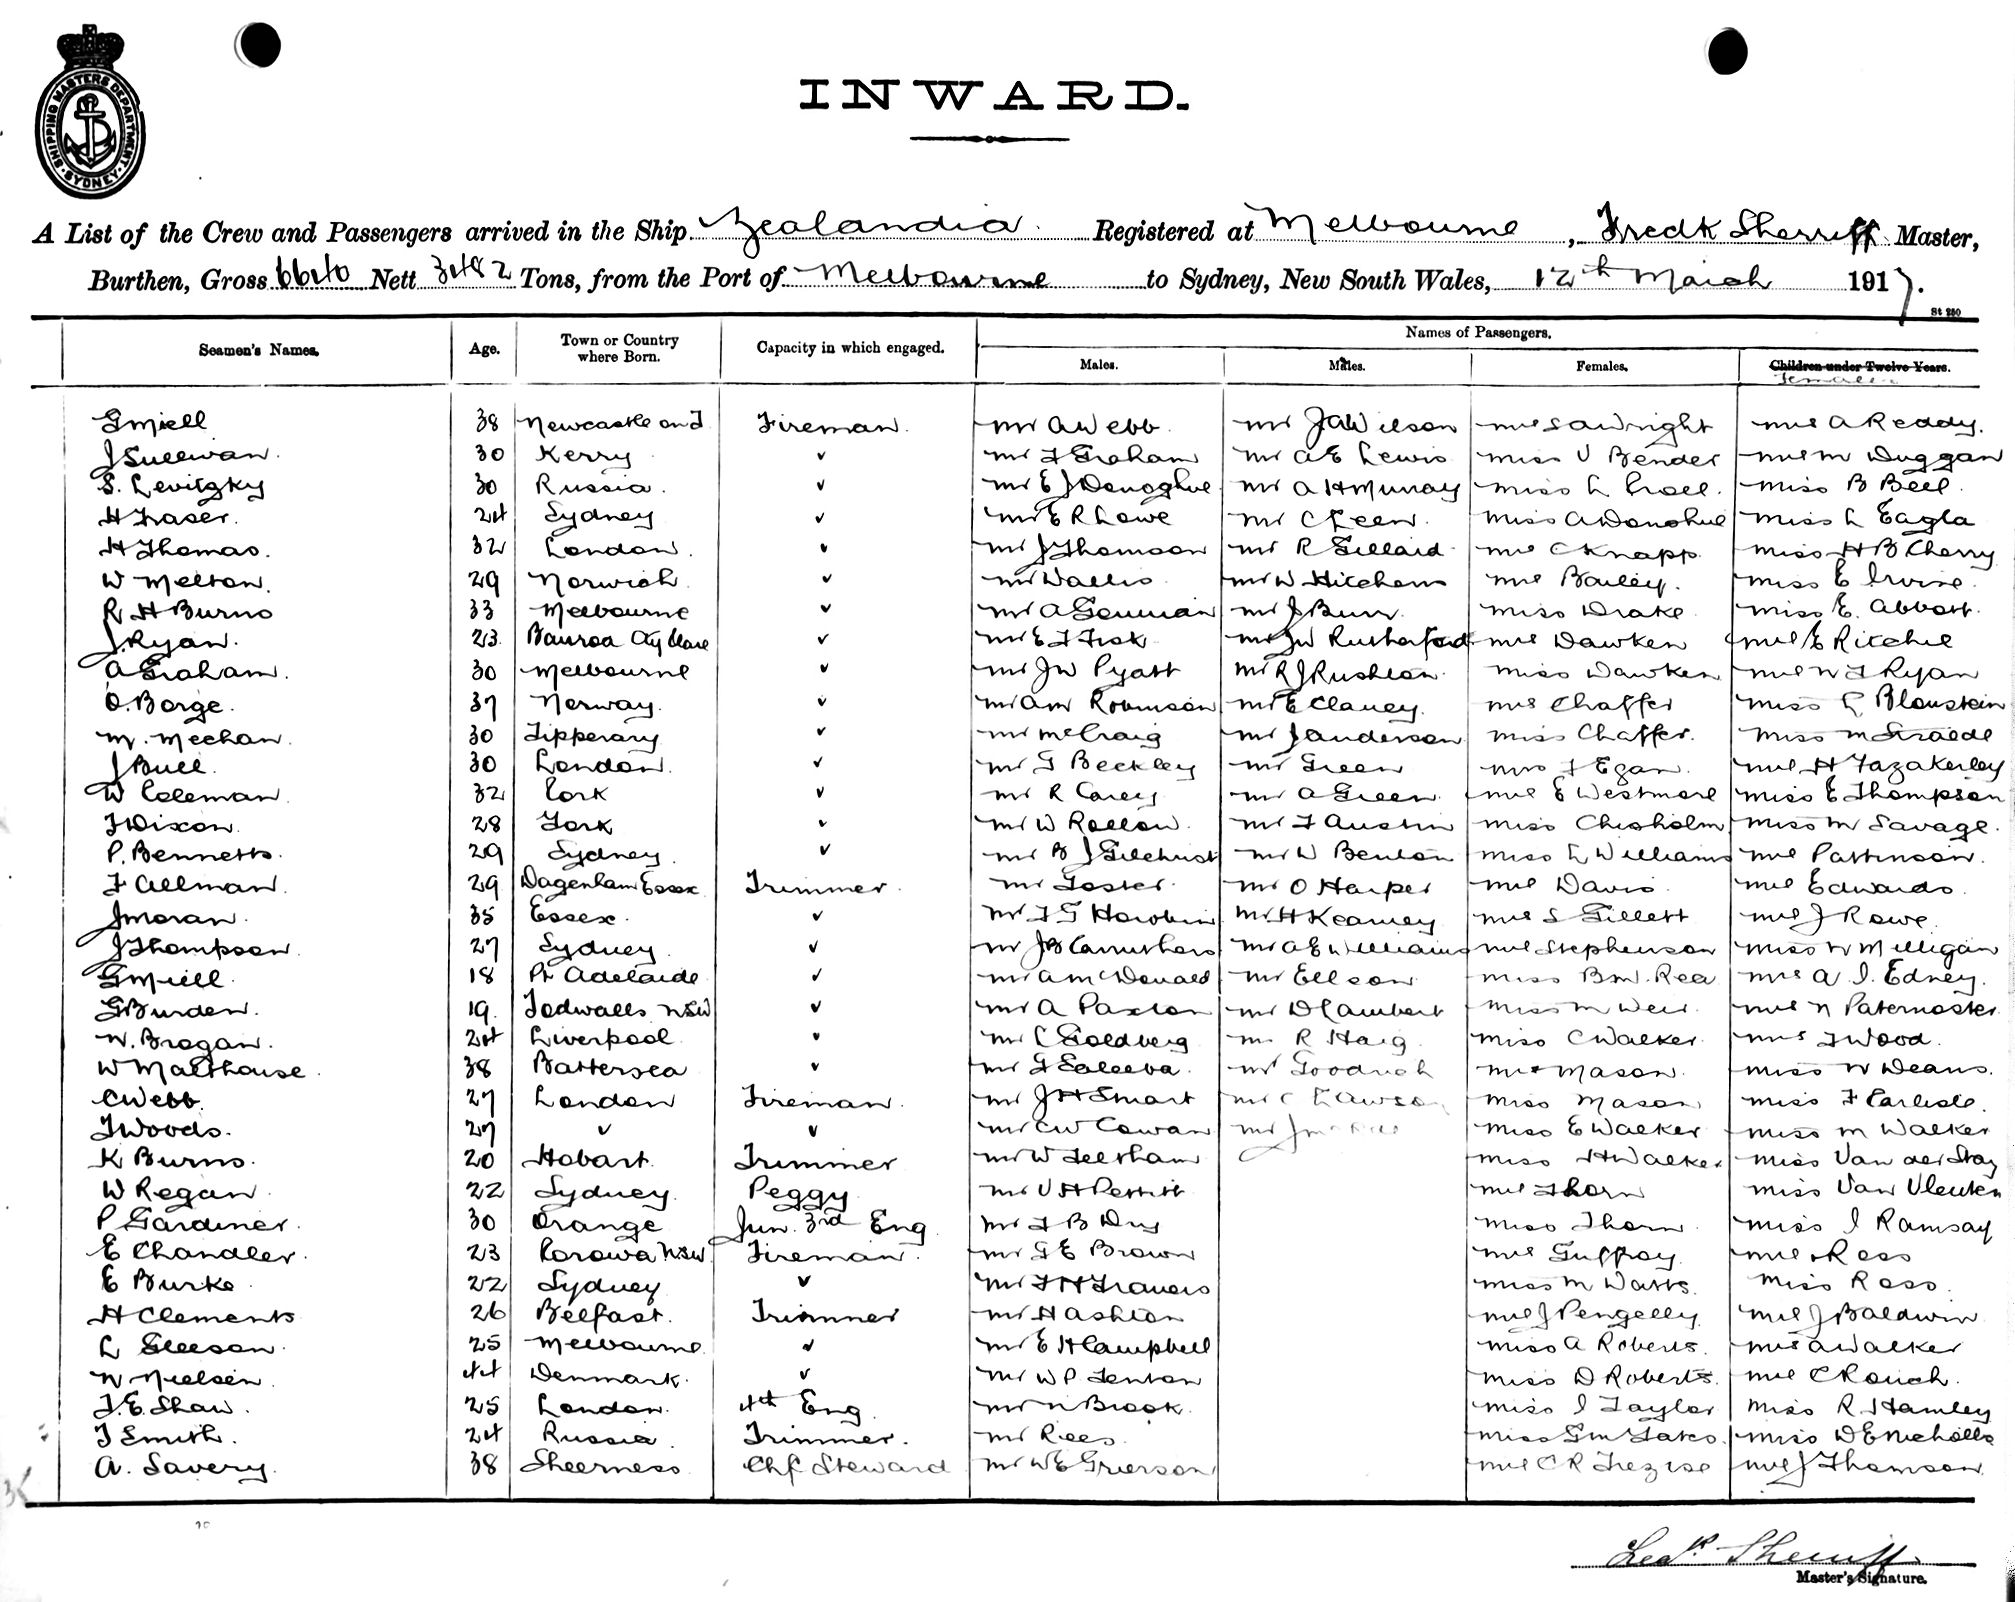 SHIPPING MASTERS DEPARTMENT
SYDNEY
INWARD.
A List of the Crew and Passengers arrived in the Ship Zealandia Registered at Melbourne, Fredk Sherriff Master,
Burthen, Gross 6640 Nett 3482 Tons, from the Port of Melbourne to Sydney, New South Wales, 12th March 1917.
St 250
Seamen's Names. Age. Town or Country where Born. Capacity in which engaged. Names of Passengers.
Males. Males. Females. Children under Twelve Years.
Females
G Miell 38 Newcastle on T Fireman Mr A Webb Mr J A Wilson Mrs S A Wright Mrs A Reddy.
J Sullivan 30 Kerry ✓ Mr F Graham Mr A E Lewis Miss V Bender Mrs M Duggan
S. Levitzky 30 Russia ✓ Mr E J Donoghue Mr A H Murray Miss L Croll Miss B Bell
H Fraser 24 Sydney ✓ Mr E R Lowe Mr C Leen Miss A Donohue Miss L Eagla
H Thomas 32 London ✓ Mr J Thomson Mr R Gillard Mrs C Knapp Miss H B Cherry
W Melton 29 Norwich ✓ Mr Wallis Mr W Hitchens Mrs Bailey Miss E Irvine
R H Burns 33 Melbourne ✓ Mr A Mr J Burr Miss Drake Miss E. Abbott
J. Ryan 23 ✓ Mr E F Fisk Mr J W Rutherford Mrs Dawken Mrs E Ritchie
A Graham 30 Melbourne ✓ Mr J W Pyatt Mr R J Rushton Miss Dawken Mrs N F Ryan
O. Borge 37 Norway ✓ Mr A M Robinson Mr E Clancy Mrs Chaffer Miss L Bloustein
M. Meehan 30 Tipperary ✓ Mr McCraig Mr J Anderson Miss Chaffer Miss M
J Bull 30 London ✓ Mr G Beckley Mr Green Mrs F Egan Mrs H Fazakerley
W Coleman 32 Cork ✓ Mr R Carey Mr A Green Mrs E Westmore Miss E Thompson
F Dixon 28 York ✓ Mr W Rollow Mr F Austin Miss Chisholm Miss M Savage
P. Bennetts 29 Sydney ✓ Mr B J Gilchrist Mr W Benton Miss L Williams Mrs Pattinson
F Allman 29 Dagenham Essex Trimmer Mr Foster Mr O Harper Mrs Davis Mrs Edwards
J Moran 35 Essex ✓ Mr F G Hawkin Mr H Kearney Mrs S Gillett Mrs J Rowe
J Thompson 27 Sydney ✓ Mr J B Carruthers Mr A E Williams Mrs Stephenson Miss W Milligan
G Miell 18 Pt Adelaide ✓ Mr A McDonald Mr Ellson Miss B M Rea Mrs A I. Edney
G Burden 19 NSW ✓ Mr A Paxton Mr D Lambert Miss M Weir Mrs N Paternoster
W. Brogan 24 Liverpool ✓ Mr C Goldberg Mr R Haig Miss C Walker Mrs F Wood
W Malthouse 38 Battersea ✓ Mr G Mr Goodrich Mrs Mason Miss W Deans
C Webb 27 London Fireman Mr J H Smart Mr C Lawson Miss Mason Miss F Carlisle
F Woods 27 ✓ ✓ Mr C W Cowan Mr J Miss E Walker Miss M Walker
K Burns 20 Hobart Trimmer Mr W Feltham Miss H Walker Miss Van der
W Regan 22 Sydney Peggy Mr V H Pettitt Mrs Thorn Miss Van
P Gardiner 30 Orange Jun. 3rd Eng Mr F B Dry Miss Thorn Miss I Ramsay
E Chandler 23 Corowa NSW Fireman Mr G E Brown Mrs Guffroy Mrs Ross
E Burke 22 Sydney ✓ Mr F H Travers Miss M Watts Miss Ross
H Clements 26 Belfast Trimmer Mr H Ashton Mrs J Pengelly Mrs J Baldwin
L Gleeson 25 Melbourne ✓ Mr E H Campbell Miss A Roberts Mrs A Walker
N Nielsen 44 Denmark ✓ Mr W P Fenton Miss D Roberts Mrs C Rouch
F. E. Shaw 25 London 4th Eng Mr N Brook Miss I Taylor Miss R Hamley
F Smith 24 Russia Trimmer Mr Rees Miss G M Yates Miss D E Nicholls
A. Savery 38 Sheerness Chf Steward Mr W E Grierson Mrs C R Trezise Mrs J Thomson
Fredk Sherriff
Master's Signature.